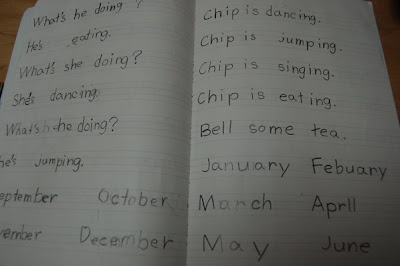 What's he doing ?
He's eating.
What's she doing?
She's dancing.
What's he doing?
he's jumping.
eptember October
ember December
Chip is dancing.
Chip is jumping.
Chip is singing.
Chip is eating.
Bell some tea.
January Febuary
March Aprll
May June